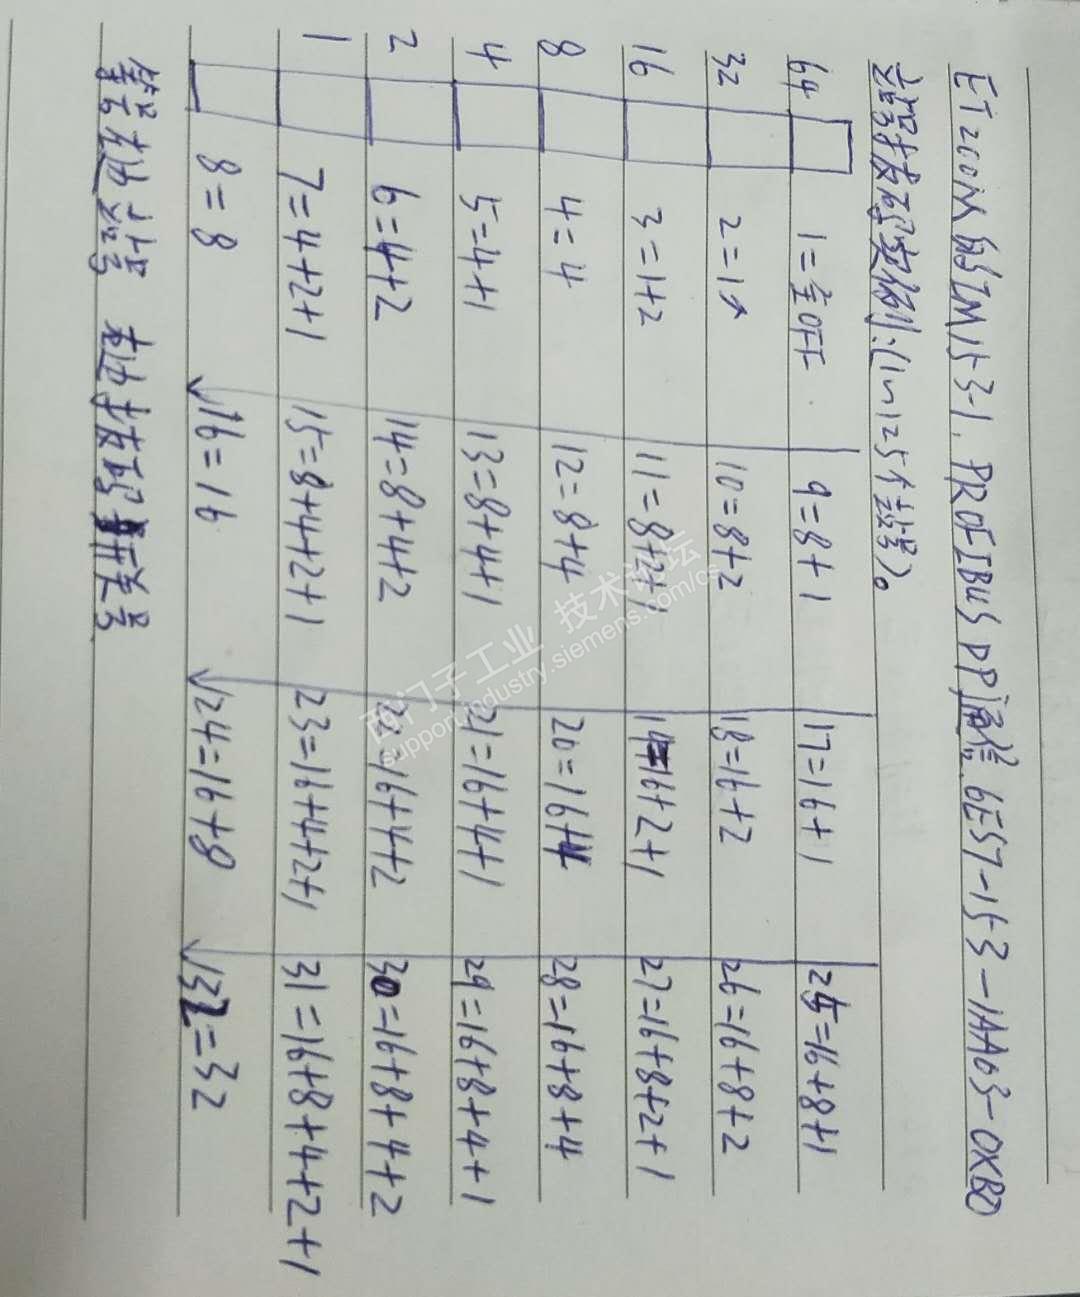 ET200M的IM153-1. PROFIBUS DP 通信 6ES7-153-1AA03-0XB0
站号拨码实例:(1~125个站号)。
64 1=全OFF 9=8+1 17=16+1 25=16+8+1
32 2=1 10=8+2 18=16+2 26=16+8+2
16 3=1+2 11=8+2+1 19=16+2+1 27=16+8+2+1
8 4=4 12=8+4 20=16+4 28=16+8+4
4 5=4+1 13=8+4+1 21=16+4+1 29=16+8+4+1
2 6=4+2 14=8+4+2 22=16+4+2 30=16+8+4+2
1 7=4+2+1 15=8+4+2+1 23=16+4+2+1 31=16+8+4+2+1
8=8 16=16 24=16+8 32=32
等号左边站号 右边拨码开关号
西门子工业 技术论坛
support.industry.siemens.com/cs